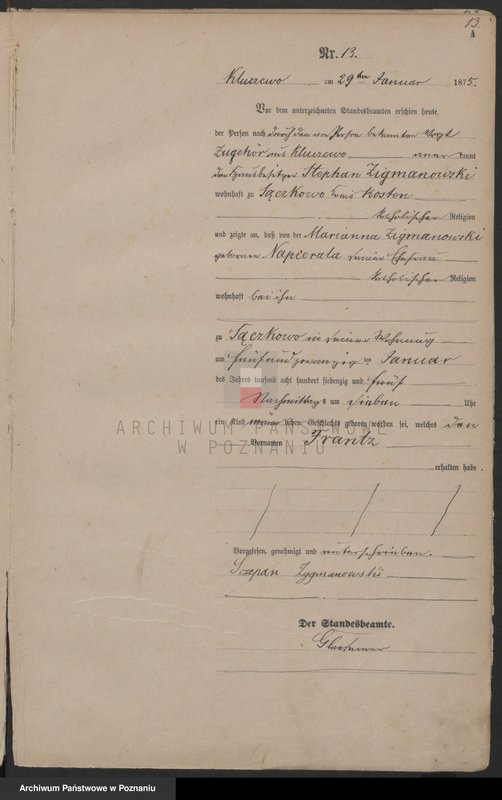 13.
A
Nr. 13.
Kluczewo am 29ten Januar 1875.
Vor dem unterzeichneten Standesbeamten erschien heute,
der Person nach durch den von Person bekannten Vogt
Zugehör aus Kluczewo aner kannt
der Hausbesitzer Stephan Zigmanowski
wohnhaft zu Sączkowo Kreis Kosten
katholischer Religion
und zeigte an, daß von der Marianna Zigmanowski
geborene Napierala seiner Ehefrau
katholischer Religion
wohnhaft bei ihm
zu Sączkowo in seiner Wohnung
am fünfundzwanzig ten Januar
des Jahres tausend acht hundert siebenzig und fünf
Nachmittags um sieben Uhr
ein Kind männ lichen Geschlechts geboren worden sei, welches den
Vornamen Frantz
erhalten habe.
Vorgelesen, genehmigt und unterschrieben.
Sczepan Zygmanowski
Der Standesbeamte.
ARCHIWUM PAŃSTWOWE
W POZNANIU
Archiwum Państwowe w Poznaniu